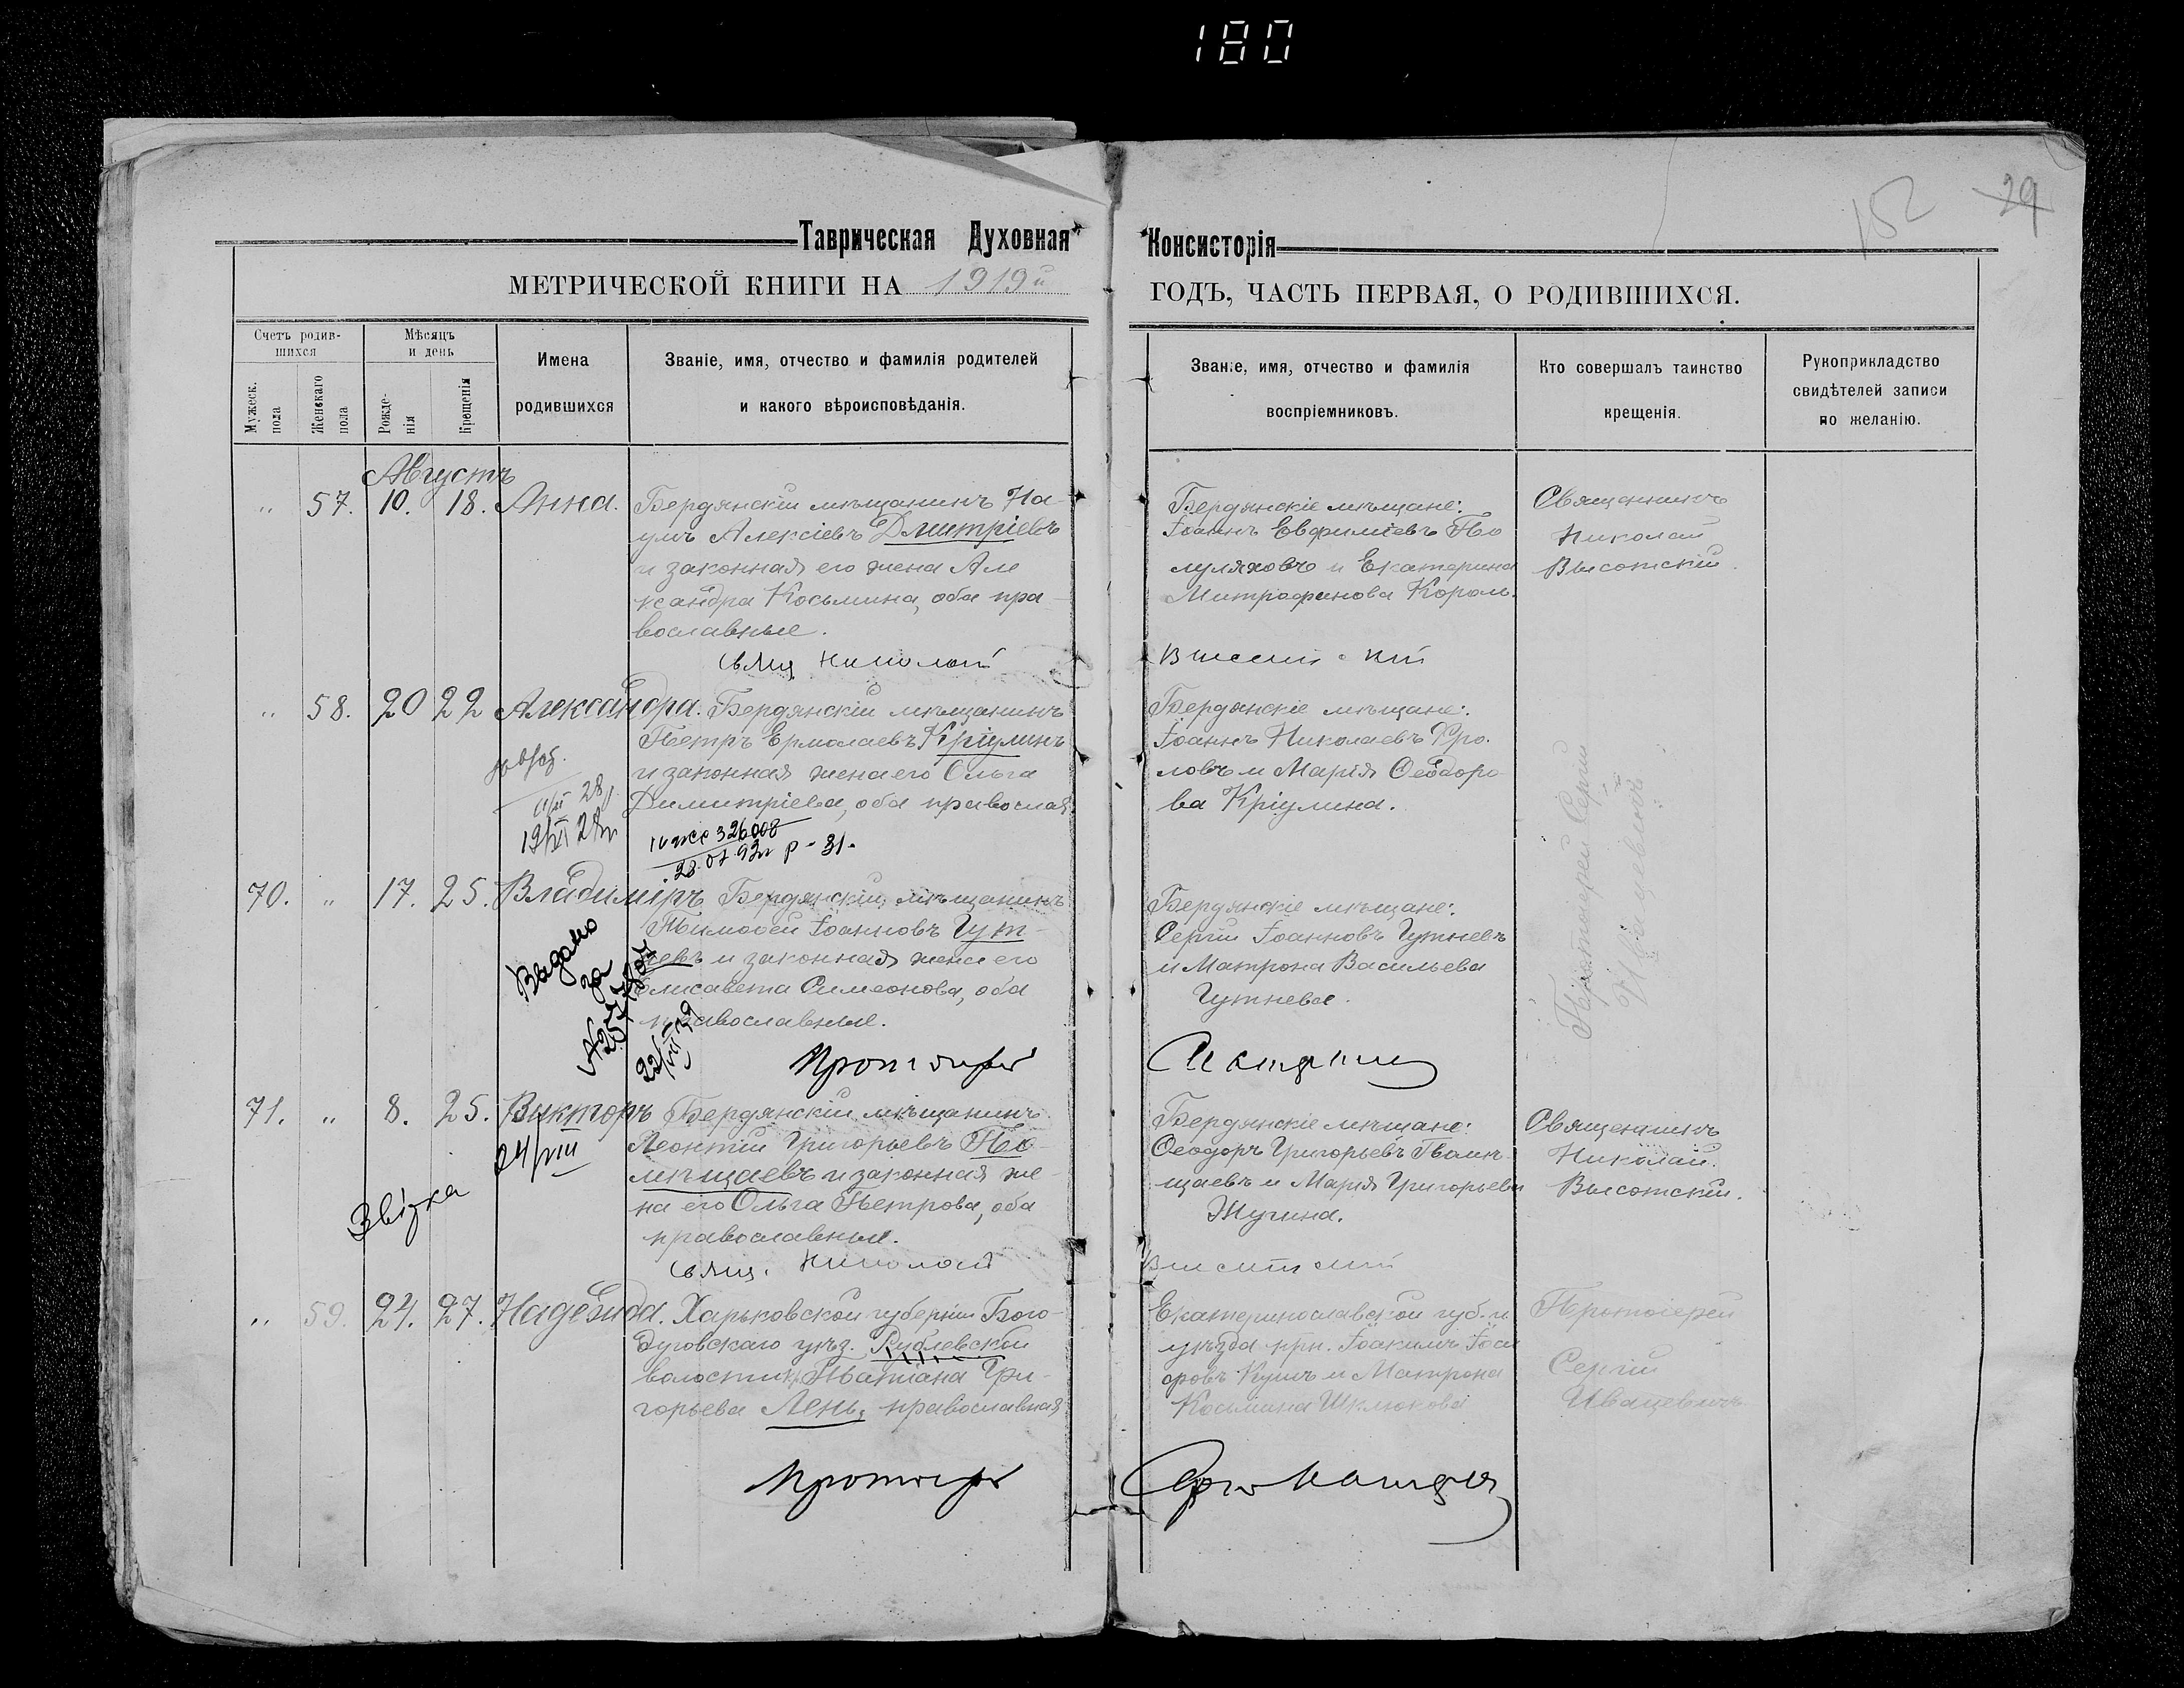 180
152 29
Таврическая Духовная Консисторія
МЕТРИЧЕСКОЙ КНИГИ НА 1919й ГОДЪ, ЧАСТЬ ПЕРВАЯ, О РОДИВШИХСЯ.
Счетъ родив-
шихся
Мужеск.
пола
Женскаго
пола
Мѣсяцъ
и день
Рожде-
нія
Крещенія
Имена
родившихся
Званіе, имя, отчество и фамилія родителей
и какого вѣроисповѣданія.
Званіе, имя, отчество и фамилія
воспріемниковъ.
Кто совершалъ таинство
крещенія.
Рукоприкладство
свидѣтелей записи
по желанію.
Августъ
" 57. 10. 18. Анна.
Бердянскій мѣщанинъ На-
умъ Алексіевъ Дмитріевъ
и законная его жена Але
ксандра Косьмина, оба пра-
вославные.
Бердянскіе мѣщане:
Іоаннъ Евфиміевъ По
луляховъ и Екатерина
Митрофанова Король.
Священникъ
Николай
Высотскій.
Свящ Николай Высотскій
" 58. 20 22 Александра.
Бердянскій мѣщанинъ
Петръ Ермолаевъ Кріулинъ
и законная жена его Ольга
Димитріева, оба православ
28
326008
28.07.92г Р-31.
Бердянскіе мѣщане:
Іоаннъ Николаевъ Фро-
ловъ и Марія Ѳеодоро
ва Кріулина.
Протоіерей Сергій
Ивацевичъ
70. " 17. 25. Владиміръ
Бердянскій мѣщанинъ
Тимоѳей Іоанновъ Гут-
невъ и законная жена его
Елисавета Симеонова, оба
православные.
Видано
за
Бердянскіе мѣщане:
Сергій Іоанновъ Гутневъ
и Матрона Васильева
Гутнева.
Протоіерей
71. " 8. 25. Викторъ
24/VIII
Звірка
Бердянскій мѣщанинъ
Леонтій Григорьевъ По-
мѣщаевъ и законная же-
на его Ольга Петрова, оба
православные.
Бердянскіе мѣщане:
Ѳеодоръ Григорьевъ
щаевъ и Марія Григорьева
Жугина.
Священникъ
Николай
Высотскій.
Свящ. Николай Высотскій
" 59. 24. 27. Надежда.
Харьковской губерніи Бого-
духовскаго уѣз. Рублевской
волости кр. Татіана Гри-
горьева Лень, православная
Екатеринославской губ. и
уѣзда крн. Іоакимъ
и Матрона
Косьмина Шклюкова
Протоіерей
Сергій
Ивацевичъ
Протоіерей